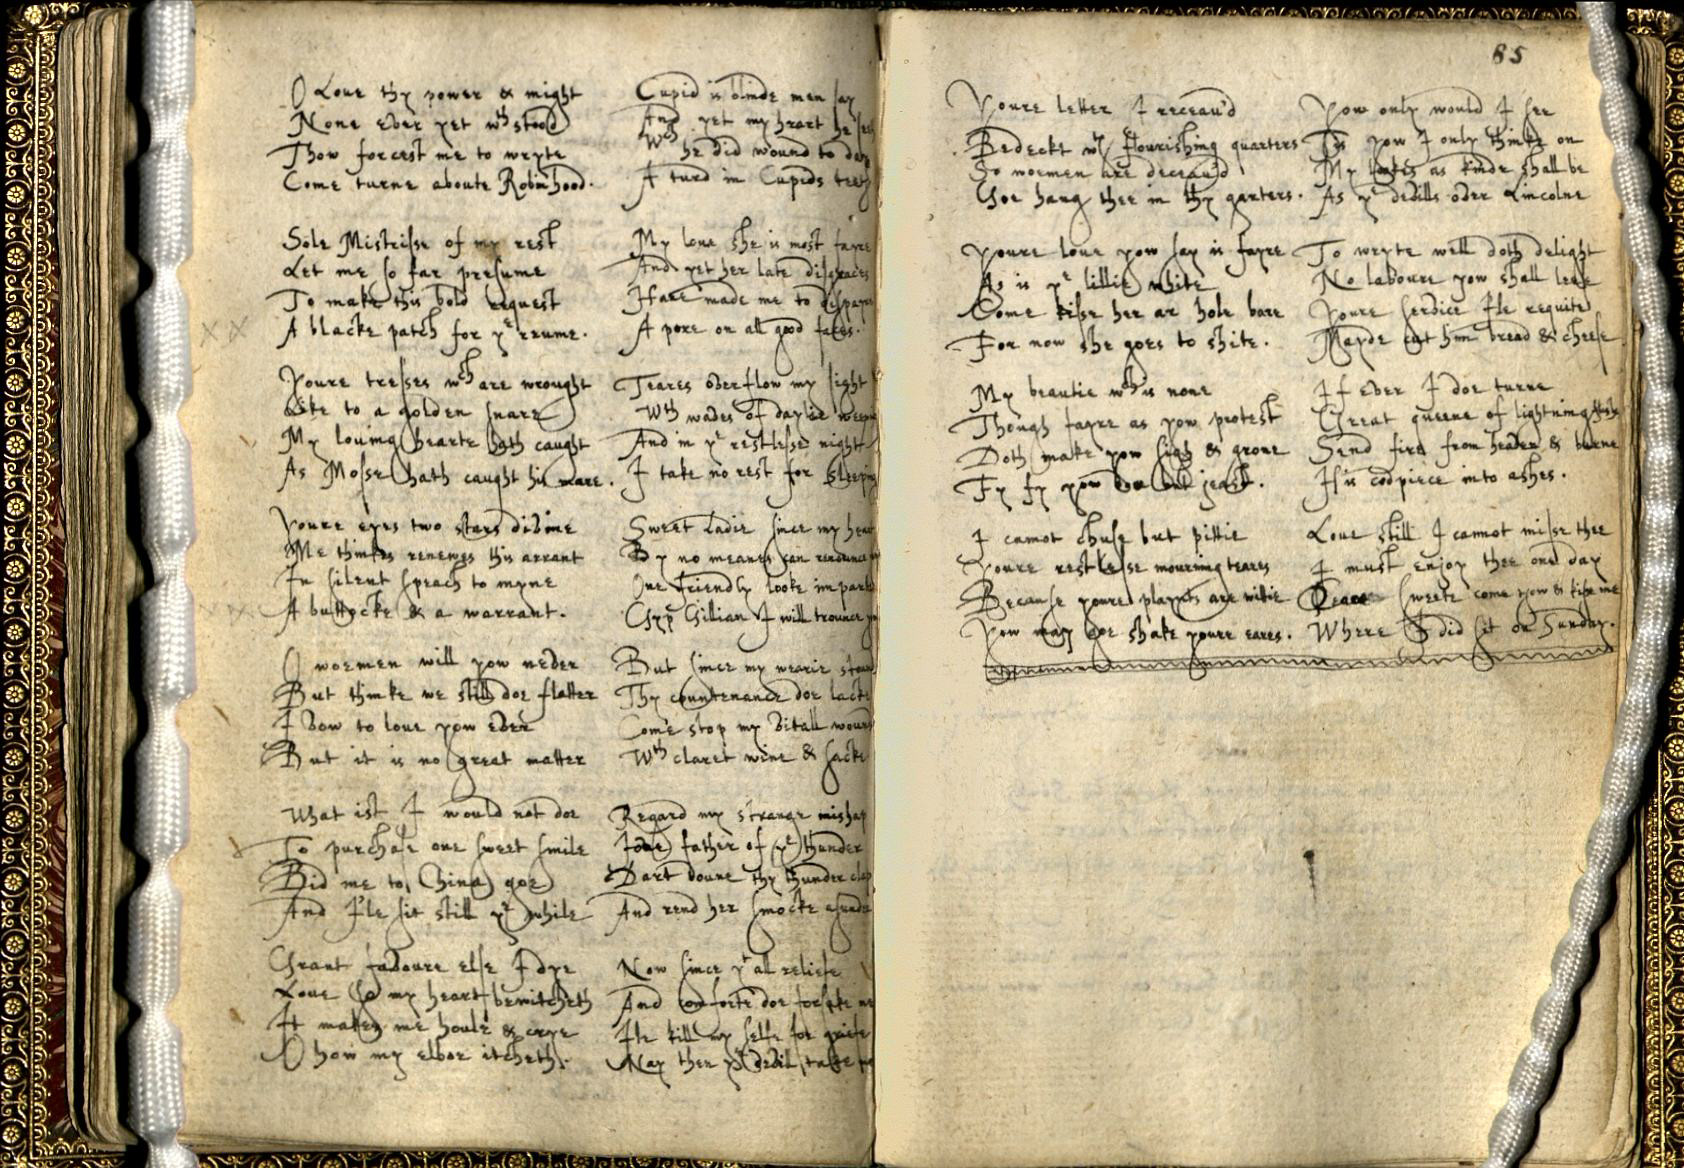 O Loue thy power & might
None ever yet wth stood
Thow forcest me to wryte
Come turne aboute Robinhood.
Sole Mistrisse of my rest
Let me so far presume
To make this bold request
A blacke patch for ye rrume.
Youre tresses wch are wrought
Like to a golden snare
My loving hearte hath caught
As Mosse hath caught his mare.
Youre eyes two stars divine
Me thinkes renewes this arrant
In silent speach to myne
A buttocke & a warrant.
O woemen will yow never
But thinke we still doe flatter
I vow to love yow ever
But it is no great matter
What ist I would not doe
To purchase one sweet smile
Bid me to China goe
And I'le sit still ye while
Grant favoure else I dye
Loue so my heart bewitcheth
It makes me houle & crye
O how my elboe itcheth.
Cupid is blinde men say
And yet my heart he
Wch he did wound to day
A turd in Cupids teeth
My loue she is most fayre
And yet her late disgraces
Haue made me to dispayre
A poxe on all good faces.
Teares overflow my sight
Wth waves of daylie weeping
And in ye restlesse night
I take no rest for sleeping
Sweet Ladie since my heart
By no meanes can renounce
One friendly looke imparte
Gyp Gillian I will trounce
But since my wearie
Thy countenance doe lacke
Come stop my vitall wound
Wth claret wine & sacke
Regard my strange mishap
Jove father of ye thunder
Dart doune thy thunder clap
And rend her smocke asunder
Now since yt al reliefe
And comforte doe forsake me
Ile kill my selfe for griefe
Nay then ye devil take me
85
Youre letter I receau'd
Bedeckt wth flourishing quarters
So woemen are deceau'd
Goe hang thee in thy garters.
Youre loue yow say is fayre
As is ye lillie white
Come kisse her ar hole bare
For now she goes to shite.
My beautie wch is none
Though fayre as yow protest
Doth make yow sigh & grone
Fy fy yow doe but jeast.
I cannot chuse but pittie
Youre restlesse mourning teares
Because youre playnts are wittie
Yow may goe shake youre eares.
Yow only would I see
Tis yow I only thinke on
My lookes as kinde shall be
As ye devills over Lincolne
To wryte well doth delight
No laboure yow shall leese
Youre service Ile requite
Mayde cut him bread & cheese
If ever I doe turne
Great queene of lightning flashes
Send fire from heaven & burne
His codpiece into ashes.
Loue still I cannot misse thee
I must enjoy thee one day
Deare sweete come now & kisse me
Where I did sit on Sunday.